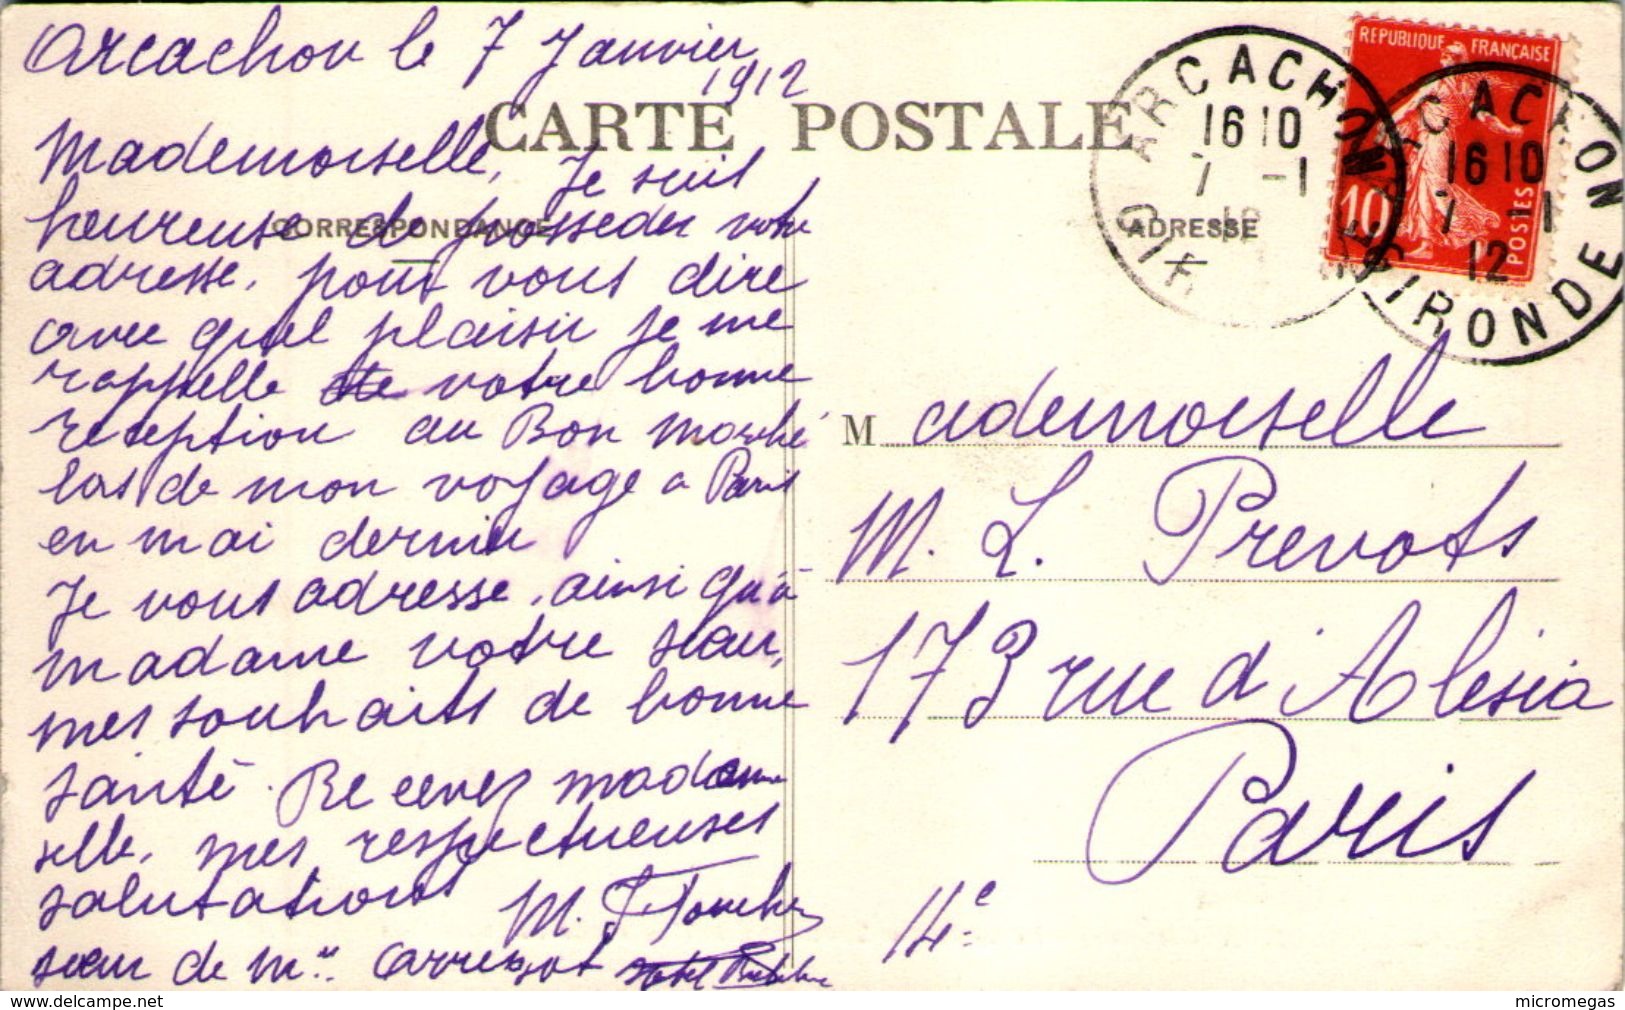 Arcachon le 7 Janvier
1912
CARTE POSTALE
CORRESPONDANCE
ADRESSE
Mademoiselle, Je suis
heureuse de posseder votre
adresse, pour vous dire
avec quel plaisir je me
rappelle votre bonne
reception au Bon Marché
lors de mon voyage a Paris
en mai dernier
Je vous adresse, ainsi qu'à
madame votre sœur,
mes souhaits de bonne
santé. Recevez madamoi
selle, mes respectueuses
salutations
M.
sœur de Mr Carrezot
ARCACHON
16 10
7 -1
12
GIRONDE
ARCACHON
16 10
7 -1
12
GIRONDE
REPUBLIQUE FRANÇAISE
10
POSTES
Mademoiselle
M. L. Prevots
173 rue d'Alesia
Paris
14e
delcampe.net
micromegas